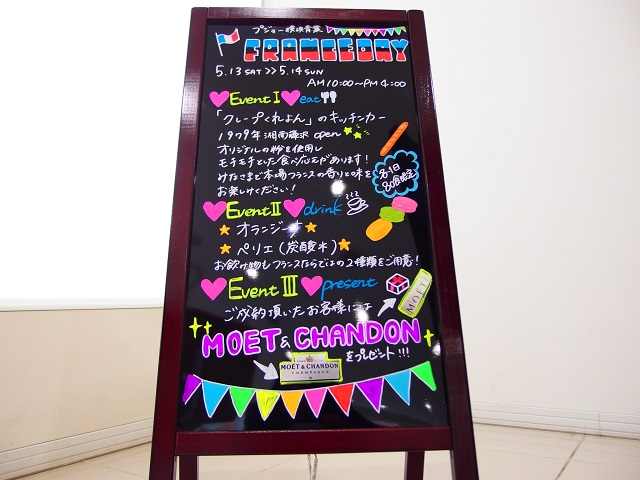 プジョー横浜青葉
FRANCEDAY
5.13 SAT >> 5.14 SUN
AM 10:00~PM 4:00
Event I eat
「クレープくれよん」のキッチンカー
1979年湘南藤沢 open
オリジナルの粉を使用し
モチモチとした食べ応えがあります!
みなさまで本場フランスの香りと味を
お楽しみください!
各1日
80食限定
Event II drink
オランジーナ
ペリエ(炭酸水)
お飲み物もフランスならではの2種類をご用意!
Event III present
ご成約頂いたお客様には
MOËT
MOET & CHANDON
をプレゼント!!!
MOËT & CHANDON
CHAMPAGNE